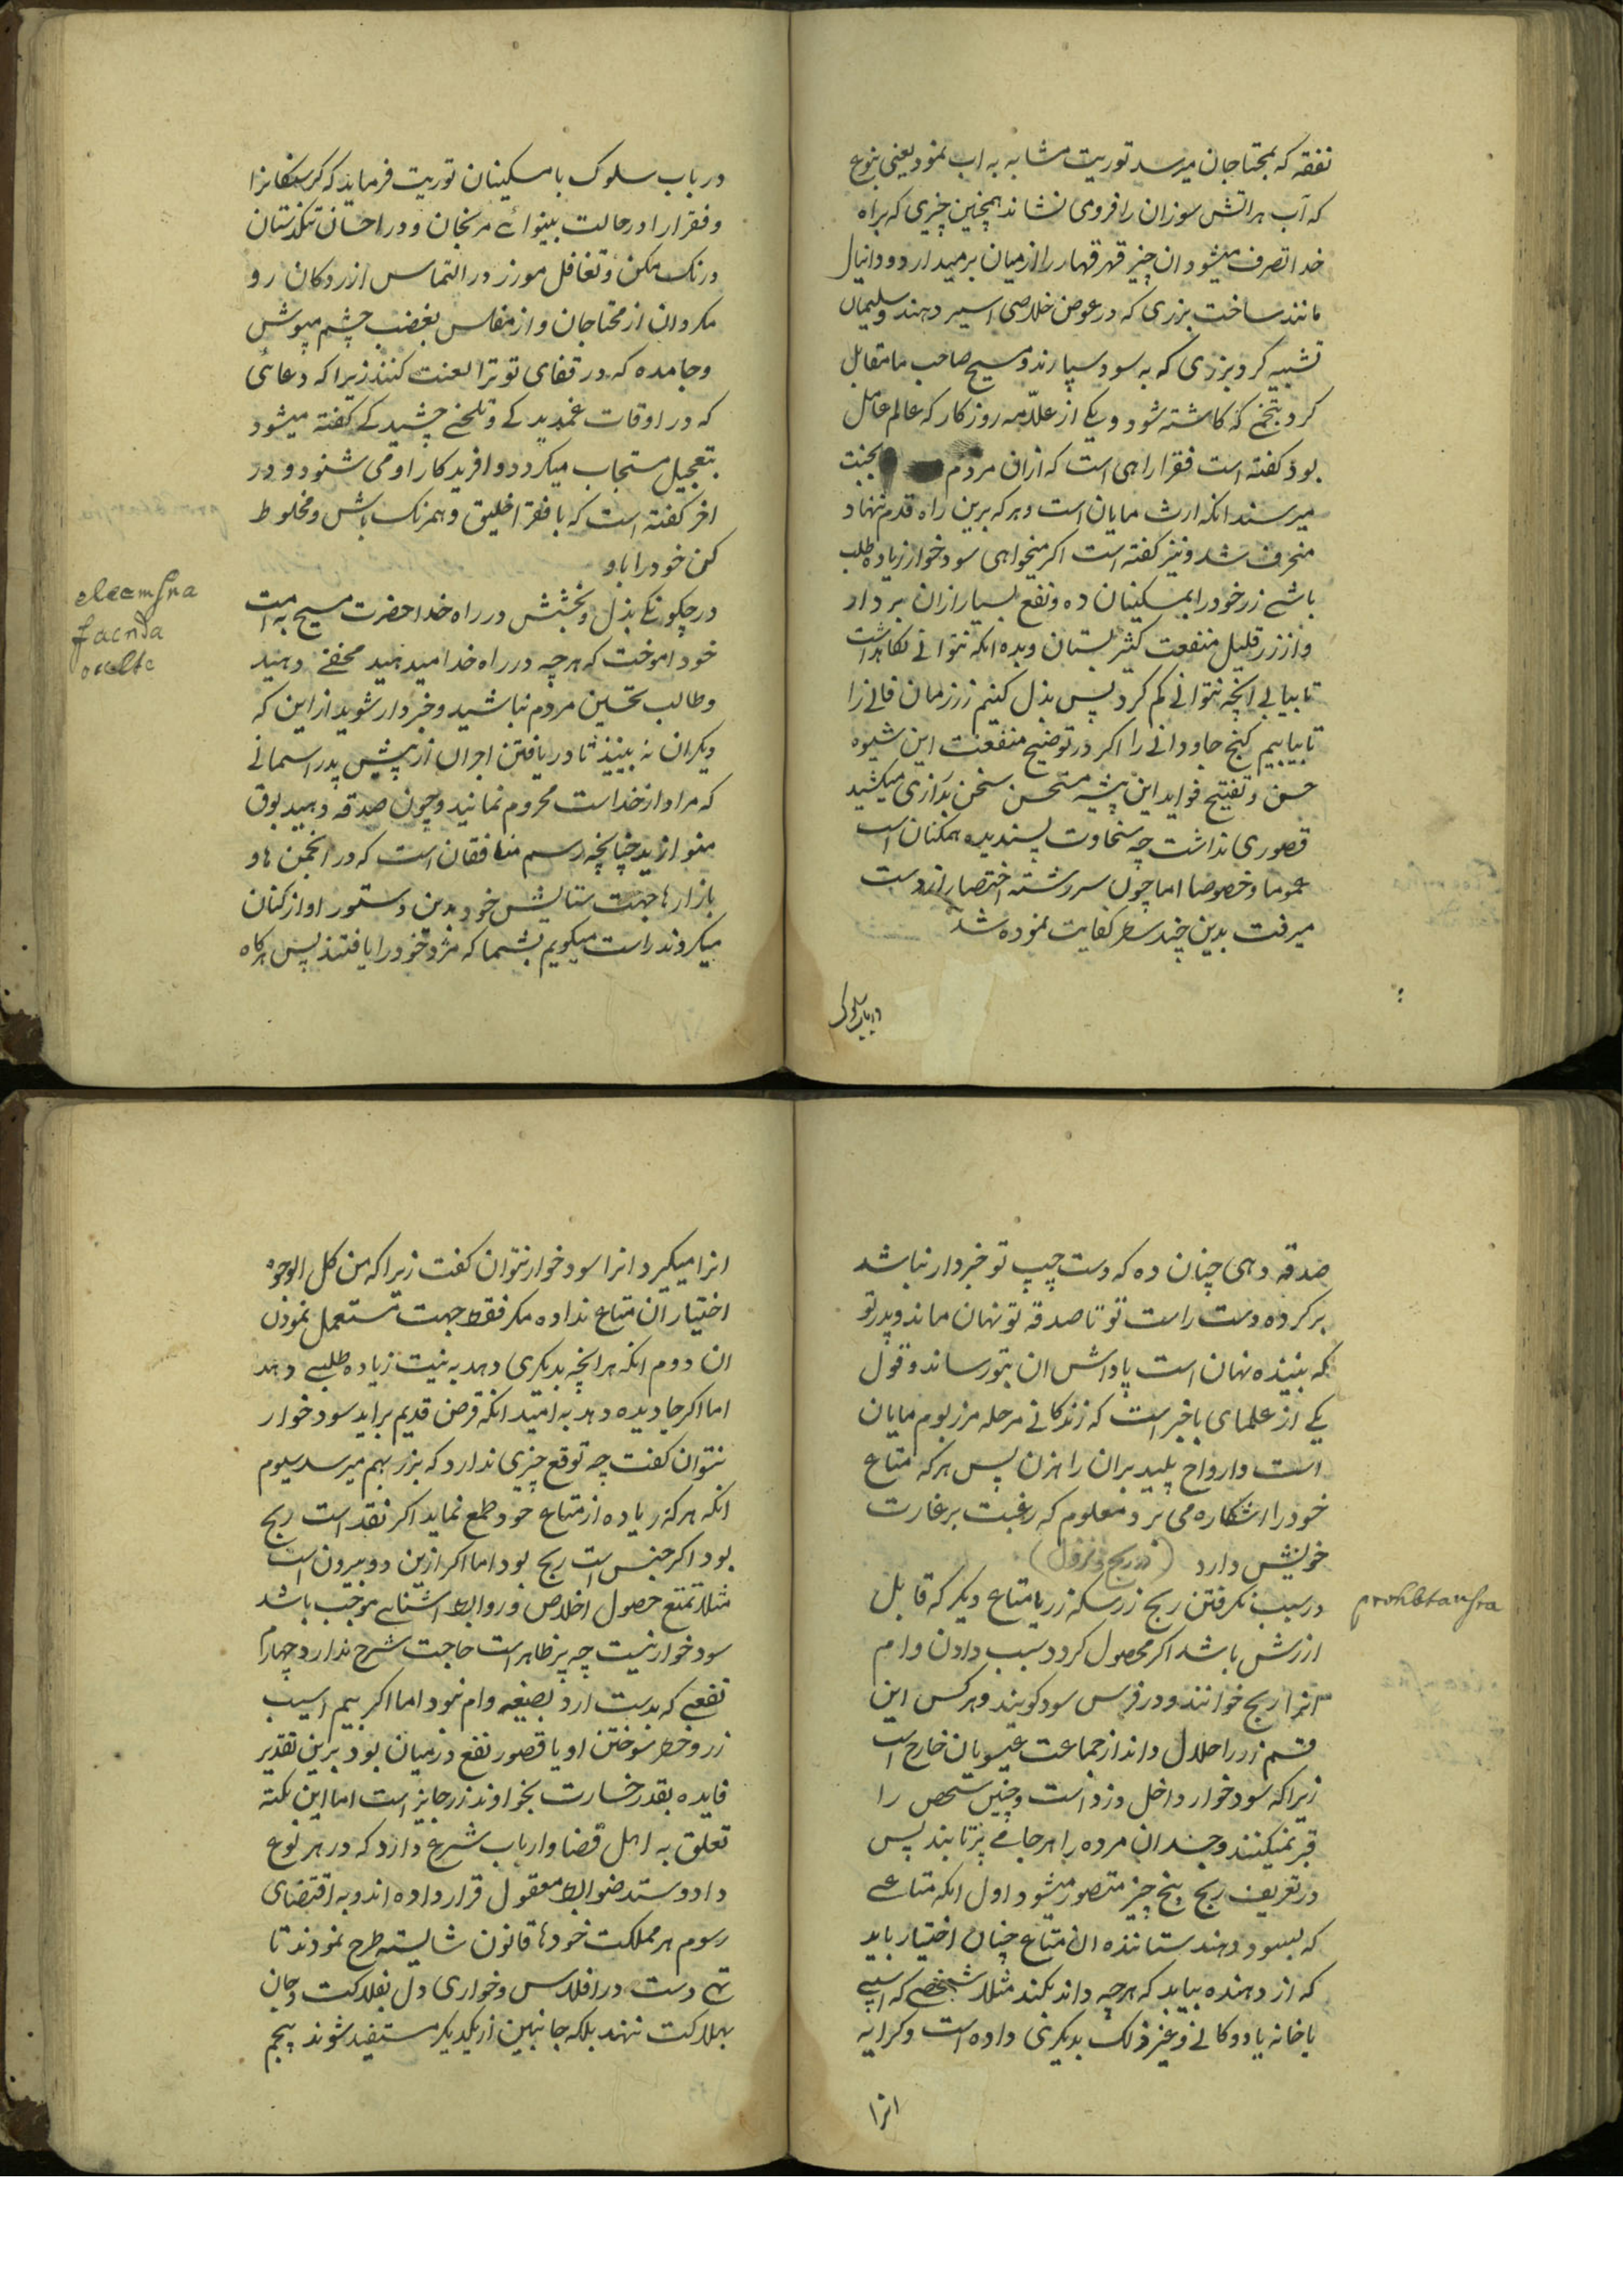 نفقه که بمحتاجان میرسد توریت مشابه به اب نمود یعنی بنوع
که آب هر اتش سوزان را فرو می نشاند همچنین چیزی که براه
خدا تصرف میشود ان چیز قهر قهار را از میان برمیدارد و دانیال
مانند ساخت بزری که در عوض خلاصی اسیر دهند و سلیمان
تشبیه کرد بزری که به سود سپارند و مسیح صاحب ما مقابل
کرد بتخمی که کاشته شود و یکی از علامه روزکار که عالم عامل
بود کفته است فقرا راهی است که ازان مردم بجنت
میرسند انکه ارث مایان است و هر که برین راه قدم ننهاد
منحرف شد و نیز کفته است اکر میخواهی سود خوار زیاده طلب
باشی زر خود را بمسکینان ده و نفع بسیار ازان بردار
و از زر قلیل منفعت کثیر بستان و بده انکه نتوانی نکاهداشت
تا بیابی انچه نتوانی کم کرد پس بذل کنیم زر زمان فانی را
تا بیابیم کنج جاودانی را اکر در توضیح منفعت این شیوه
حسن و تفتیح فواید این پیشه مستحسن سخن بدرازی میکشید
قصوری نداشت چه سخاوت پسندیده همکنان است
عموما و خصوصا اما چون سررشته اختصار از دست
میرفت بدین چند سطر کفایت نموده شد
در باب سلوک
در باب سلوک با مسکینان توریت فرماید که کرسنکانرا
و فقرا را در حالت بینوائی مرنجان و در احسان تنکدستان
درنک مکن و تغافل مورز در التماس ازردکان رو
مکردان از محتاجان و از مفلس بغضب چشم مپوش
و جا مده که در قفای تو ترا لعنت کنند زیرا که دعائی
که در اوقات غمدیدکی و تلخی چشیدکی کفته میشود
بتعجیل مستجاب میکردد و افریدکار او می شنود و در
اخر کفته است که با فقرا خلیق و همرنک باش و مخلوط
کن خود را باو
در چکونکی بذل و بخشش در راه خدا حضرت مسیح به امت
خود اموخت که هرچه در راه خدا میدهید مخفی دهید
و طالب تحسین مردم نباشید و خبردار شوید از این که
دیکران نه بینند تا در یافتن اجران از پیش پدر اسمانی
که مراد از خداست محروم نمانید و چون صدقه دهید بوق
منوازید چنانچه رسم منافقان است که در انجمن ها و
بازارها جهت ستایش خود بدین دستور اواز کنان
میکردند راست میکویم بشما که مزد خود را یافتند پس هرکاه
eleemsna
facnda
occlte
صدقه دهی چنان ده که دست چپ تو خبردار نباشد
بر کرده دست راست تو تا صدقه تو نهان ماند و پدر تو
که بیننده نهان است پاداش ان بتو رساند و قول
یکی از علمای باخبر است که زندکانی مرحله مرزبوم مایان
است و ارواح پلید بران راهزن پس هر که متاع
خود را اشکاره می برد معلوم که رغبت بر غارت
خویش دارد (در ربح و نزول)
در سبب نکرفتن ربح زر سکه زر یا متاع دیکر که قابل
ارزش باشد اکر محصول کردد سبب دادن وام
انرا ربح خوانند و در فرس سود کویند و هر کس این
قسم زر را حلال داند از جماعت عیسویان خارج است
زیرا که سود خوار داخل دزد است و چنین شخص را
قبر نمیکنند و چندان مرده را هر جا می پرتابند پس
در تعریف ربح پنج چیز متصور میشود اول انکه متاعی
که بسود دهند ستاننده ان متاع چنان اختیار باید
که از دهنده بیابد که هر چه داند بکند مثلا شخصی که اسپی
یا خانه یا دوکانی و غیر ذلک بدیکری داده است و کرایه
انرا
prohbtausra
انرا میکیرد انرا سود خوار نتوان کفت زیرا که من کل الوجوه
اختیار ان متاع نداده مکر فقط جهت مستعمل نمودن
ان دوم انکه هر انچه بدیکری دهد به نیت زیاده طلبی دهد
اما اکر جا دیده دهد به امید انکه قرض قدیم براید سود خوار
نتوان کفت چه توقع چیزی ندارد که بزر بهم میرسد سیوم
انکه هر که زیاده از متاع خود طمع نماید اکر نقد است ربح
بود اکر جنس است ربح بود اما اکر ازین دو بیرون است
مثلا تمتع حصول اخلاص و روابط اشنایی موجب باشد
سود خوار نیست چه پر ظاهر است حاجت شرح ندارد چهارم
نفعی که بدست ارد بصیغه وام نبود اما اکر بیم اسیب
زر و خطر سوختن او یا قصور نفع در میان بود برین تقدیر
فایده بقدر خسارت بخداوند زر جایز است اما این نکته
تعلق به اهل قضا و ارباب شرع دارد که در هر نوع
داد و ستد ضوابط معقول قرار داده اند و به اقتضای
رسوم هر مملکت خودها قانون شایسته طرح نمودند تا
تهی دست در افلاس و خواری دل بفلاکت و جان
بهلاکت ننهد بلکه جانبین از یکدیکر مستفید شوند پنجم